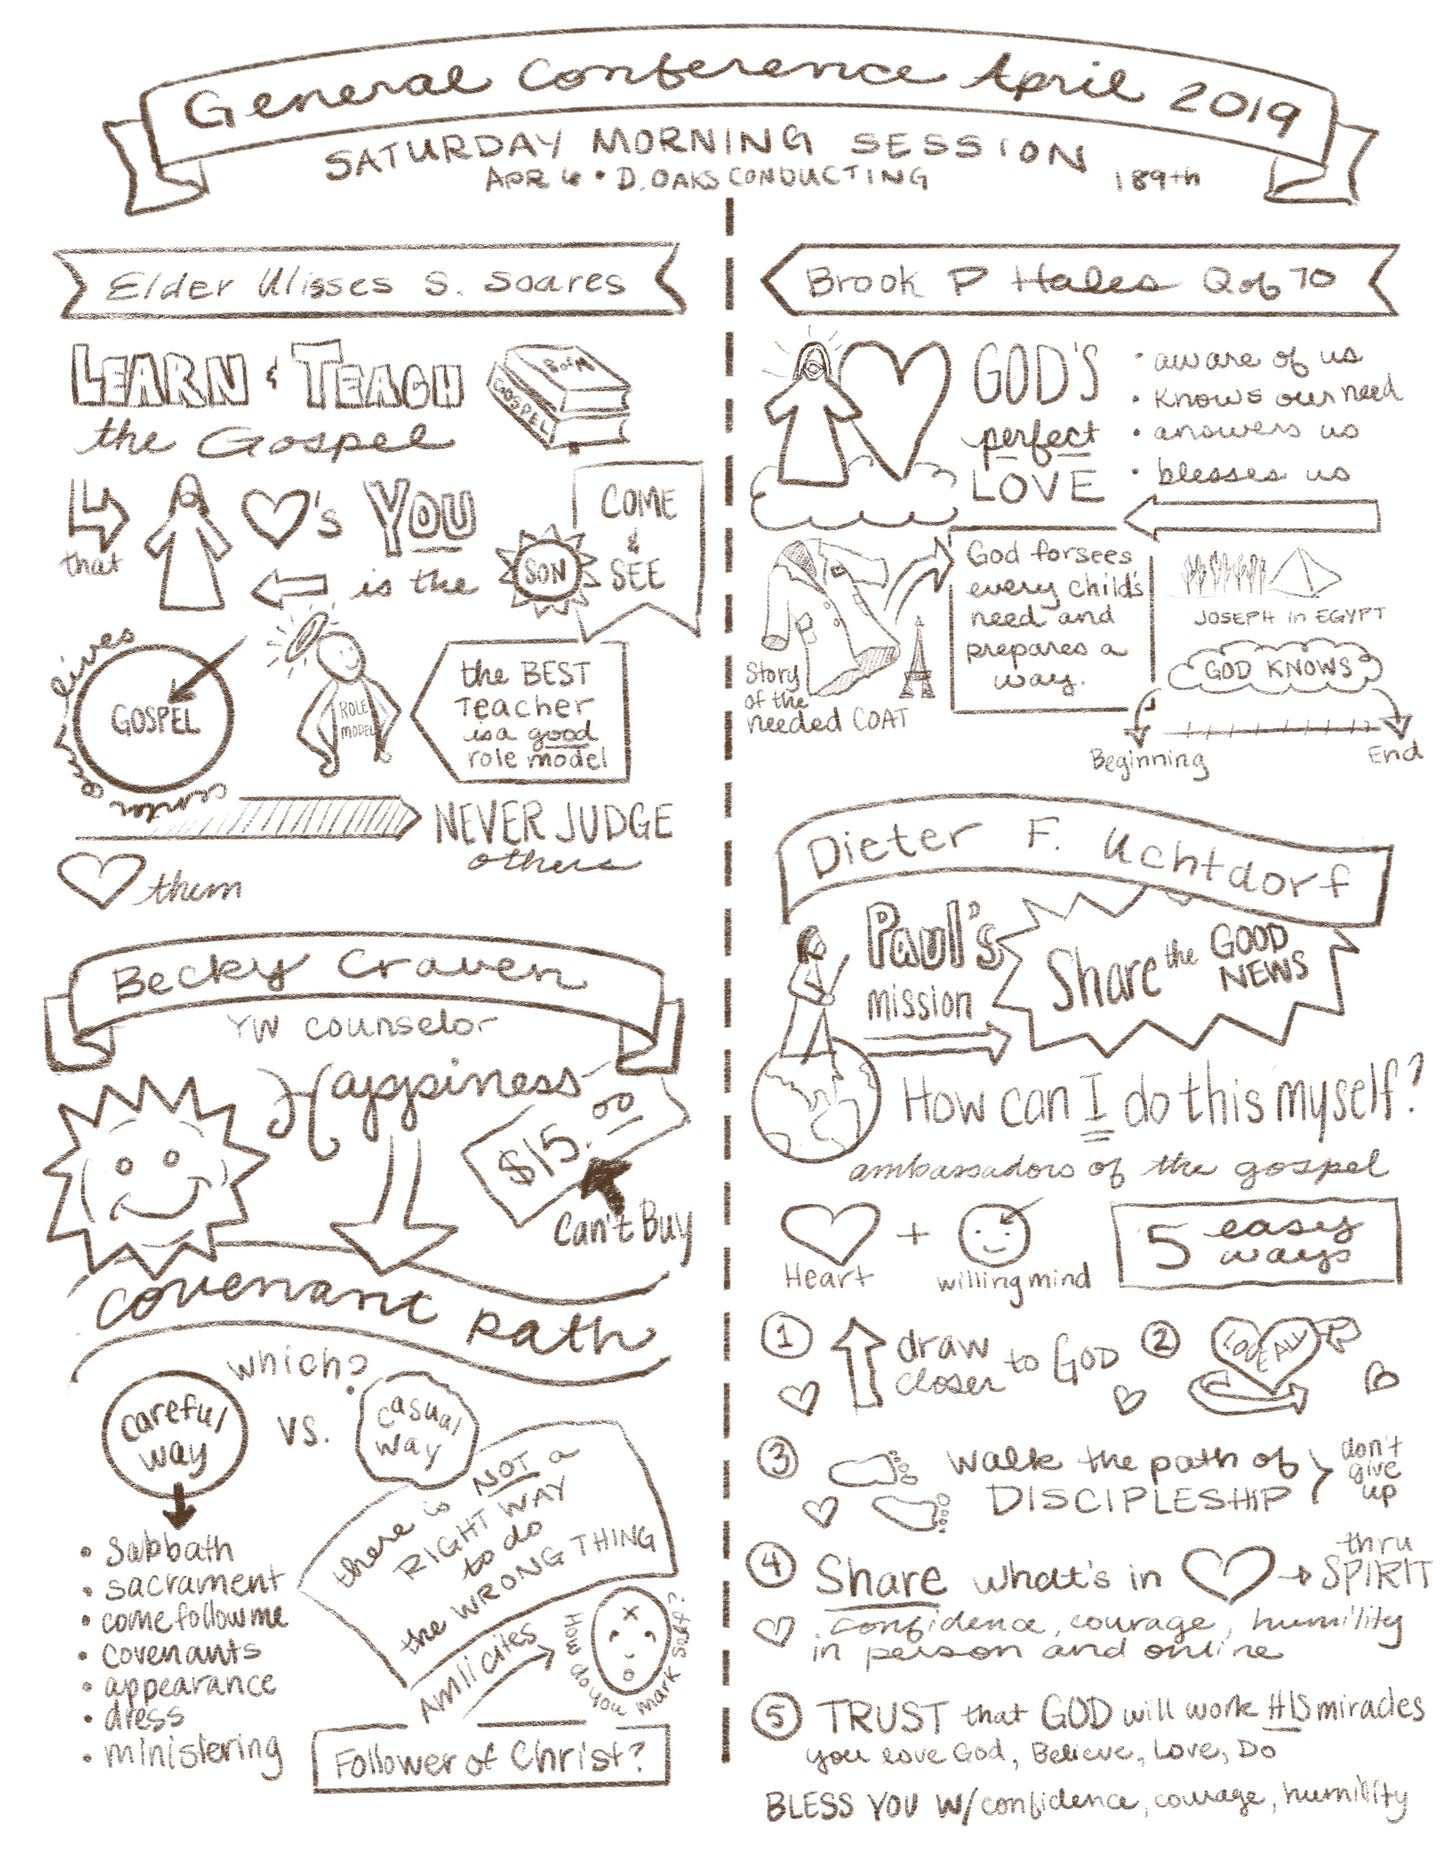 General Conference April 2019
SATURDAY MORNING SESSION
APR 6 • D. OAKS CONDUCTING
189th
Elder Ulisses S. Soares
LEARN & TEACH
the Gospel
BofM
GOSPEL
that
's YOU
is the
SON
COME
&
SEE
GOSPEL
center our lives
ROLE
MODEL
the BEST
Teacher
is a good
role model
NEVER JUDGE
others
them
Becky Craven
YW counselor
Happiness
$15.00
Can't Buy
covenant path
which?
careful
way
vs.
casual
way
• Sabbath
• sacrament
• come follow me
• covenants
• appearance
• dress
• ministering
there is NOT a
RIGHT WAY
to do
the WRONG THING
Amlicites
How do you mark self?
Follower of Christ?
Brook P Hales Q of 70
GOD'S
perfect
LOVE
• aware of us
• knows our need
• answers us
• blesses us
Story
of the
needed COAT
God forsees
every child's
need and
prepares a
way.
JOSEPH in EGYPT
GOD KNOWS
Beginning
End
Dieter F. Uchtdorf
Paul's
mission
Share the GOOD
NEWS
How can I do this myself?
ambassadors of the gospel
Heart
+
willing mind
5 easy
ways
1 draw
closer to GOD
2 LOVE ALL
3 walk the path of
DISCIPLESHIP
don't
give
up
4 Share what's in
thru
SPIRIT
confidence, courage, humility
in person and online
5 TRUST that GOD will work HIS miracles
you love God, Believe, Love, Do
BLESS YOU w/ confidence, courage, humility